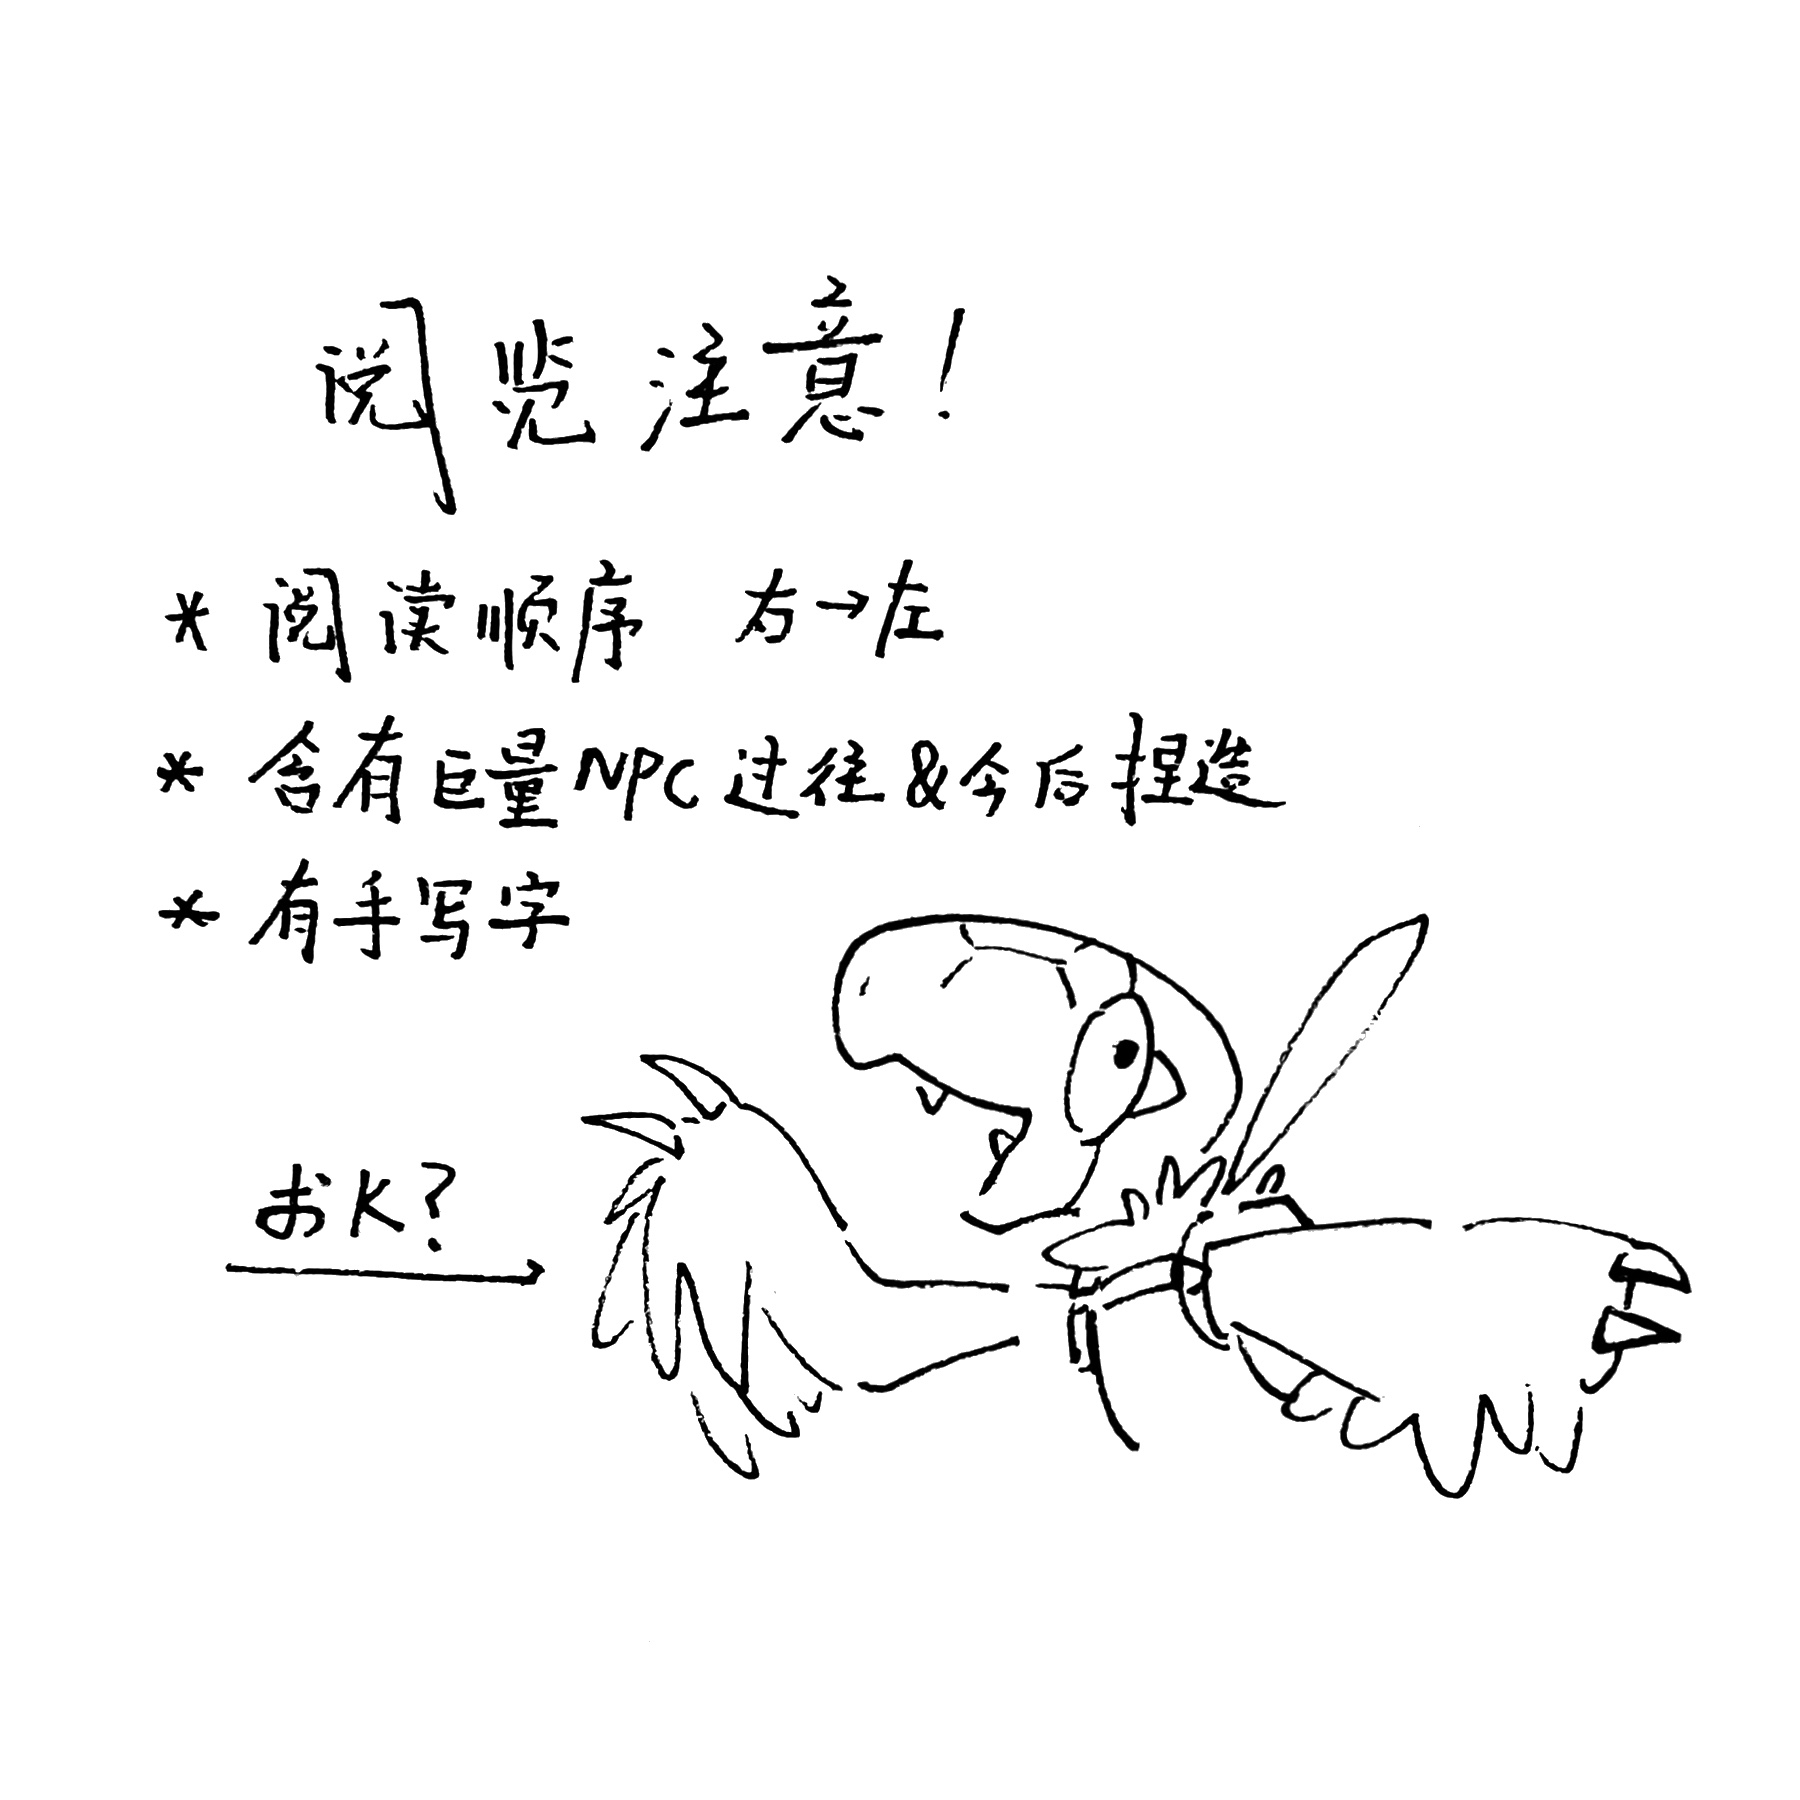 阅览注意!
* 阅读顺序 右→左
* 含有巨量NPC过往&今后捏造
* 有手写字
おK?